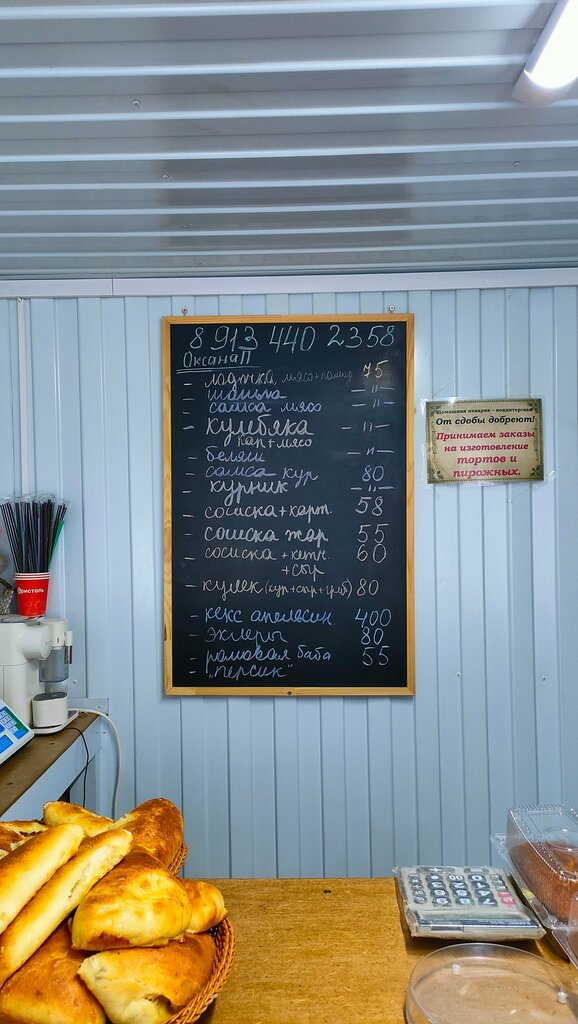 8 913 440 2358
Оксана П
- лодочка мясо+помид 75
- шаньга -"-
- самса мясо -"-
- кулебяка -"-
кар+мясо
- беляш -"-
- самса кур 80
- курник -"-
- сосиска+карт. 58
- сосиска жар 55
- сосиска + кетч. 60
+ сыр
- кулек (кур+сыр+гриб) 80
- кекс апельсин 400
- эклеры 80
- ромовая баба 55
- "персик"
Домашняя пекарня - кондитерская
От сдобы добреют!
Принимаем заказы
на изготовление
тортов и
пирожных.